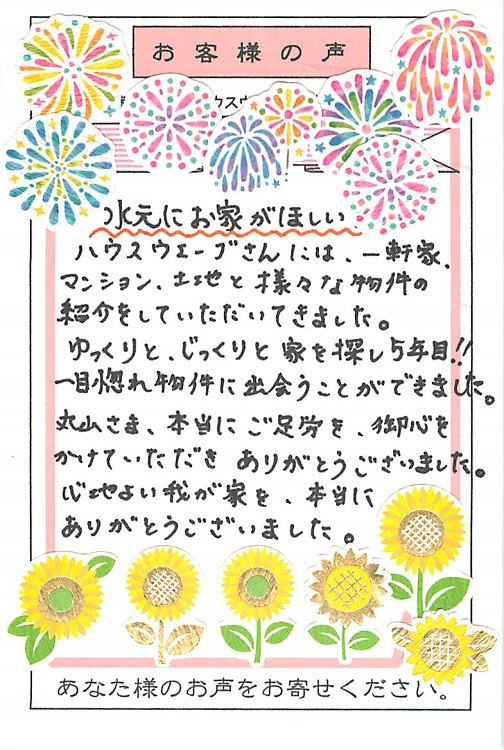 お客様の声
水元にお家がほしい、
ハウスウエーブさんには、一軒家、
マンション、土地と様々な物件の
紹介をしていただいてきました。
ゆっくりと、じっくりと家を探し5年目!!
一目惚れ物件に出会うことができました。
丸山さま、本当にご足労を、御心を
かけていただきありがとうございました。
心地よい我が家を、本当に
ありがとうございました。
あなた様のお声をお寄せください。